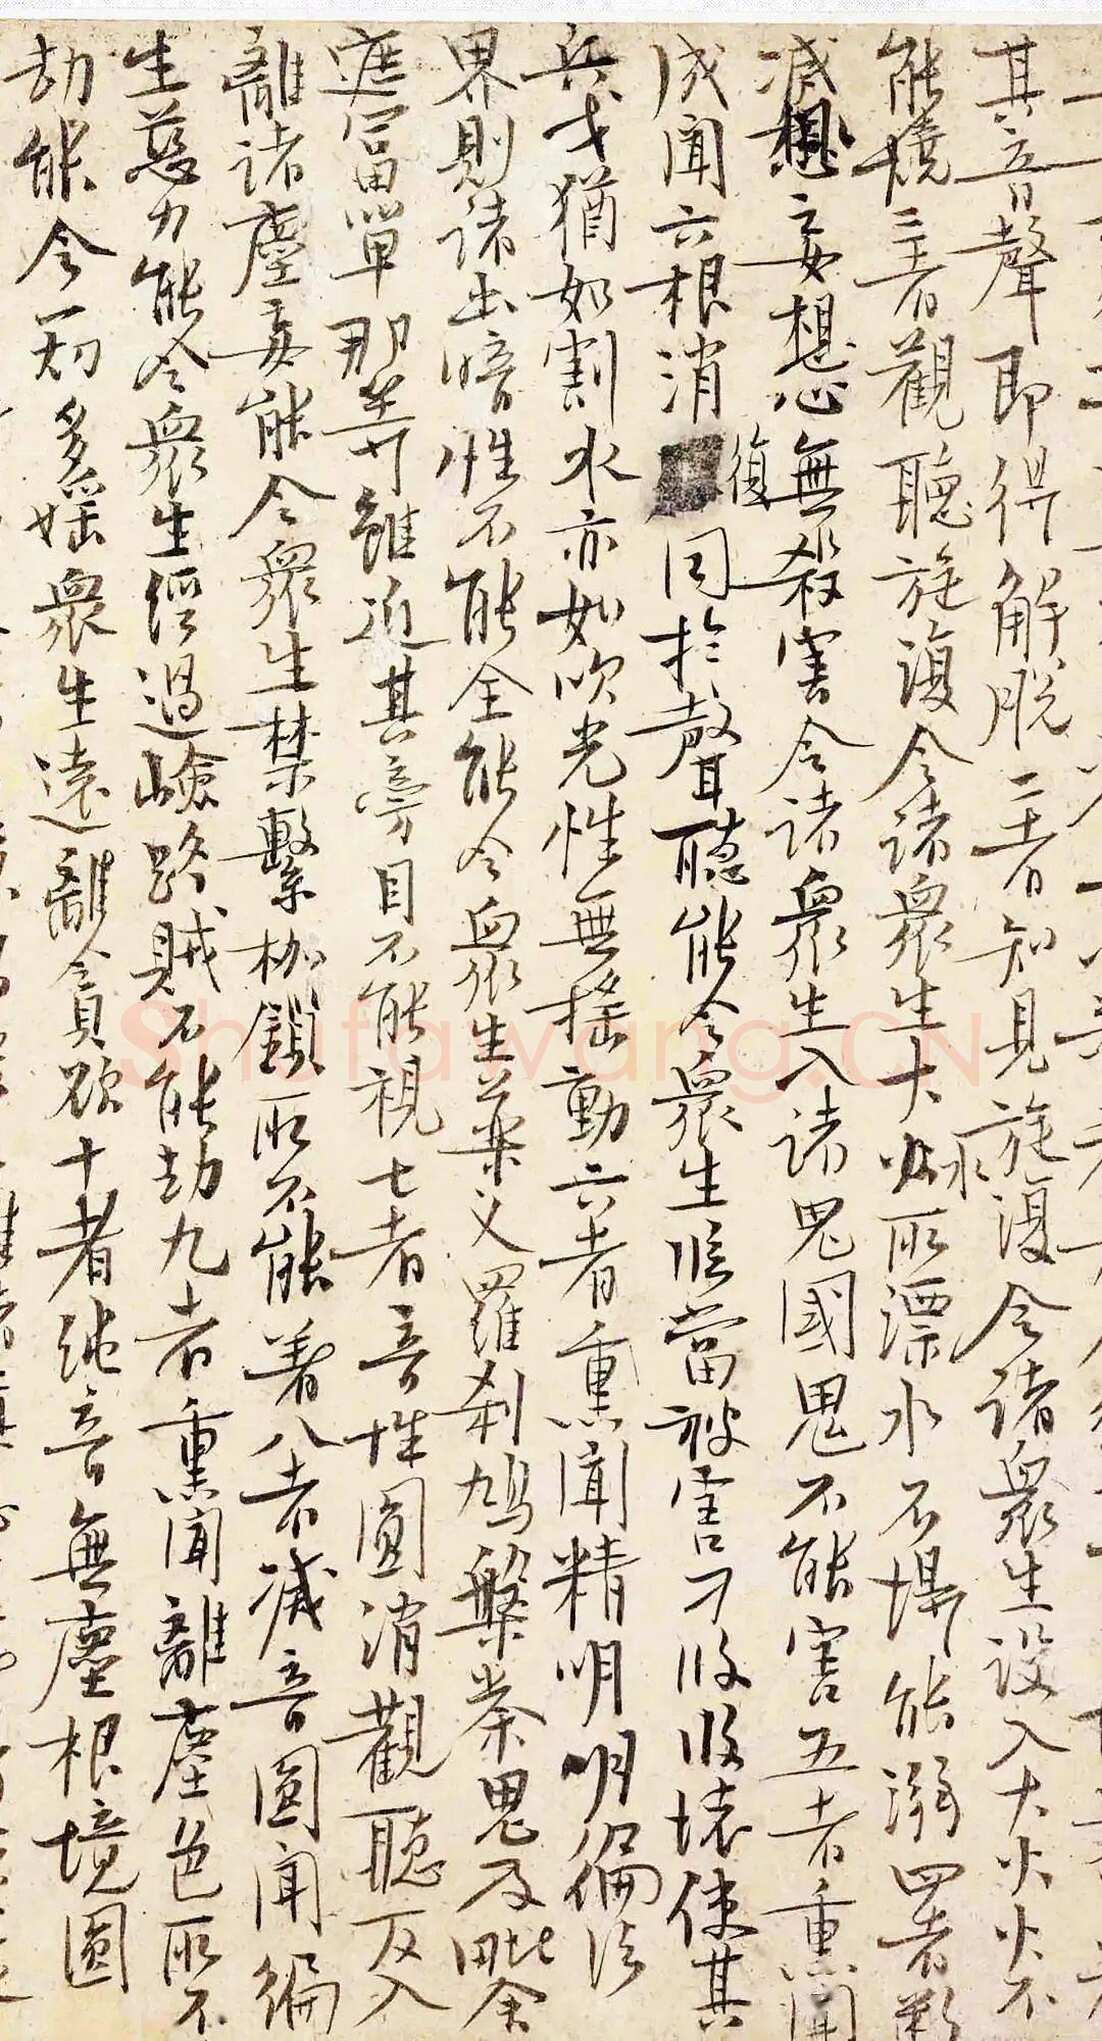 其音聲即得解脫二者知見旋復令諸眾生設入大火火不
能燒三者觀聽旋復令諸眾生大水所漂水不能溺四者斷
滅妄想心無殺害令諸眾生入諸鬼國鬼不能害五者熏聞
成聞六根消復同於聲聽能令眾生臨當被害刀段段壞使其
兵戈猶如割水亦如吹光性無搖動六者熏聞精明明徧法
界則諸幽暗性不能全能令眾生藥叉羅剎鳩槃茶鬼及毗舍
遮富單那等雖近其旁目不能視七者音性圓消觀聽反入
離諸塵妄能令眾生禁繫枷鎖所不能著八者滅音圓聞徧
生慈力能令眾生經過嶮路賊不能劫九者熏聞離塵色所不
劫能令一切多婬眾生遠離貪欲十者純音無塵根境圓
Shufawang.CN